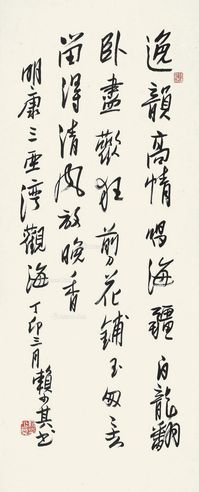 逸韻高情唱海疆白龍翻
卧盡歡狂剪花鋪玉匆言
留得清風放晚香
明康三亞灣觀海丁卯三月賴少其書